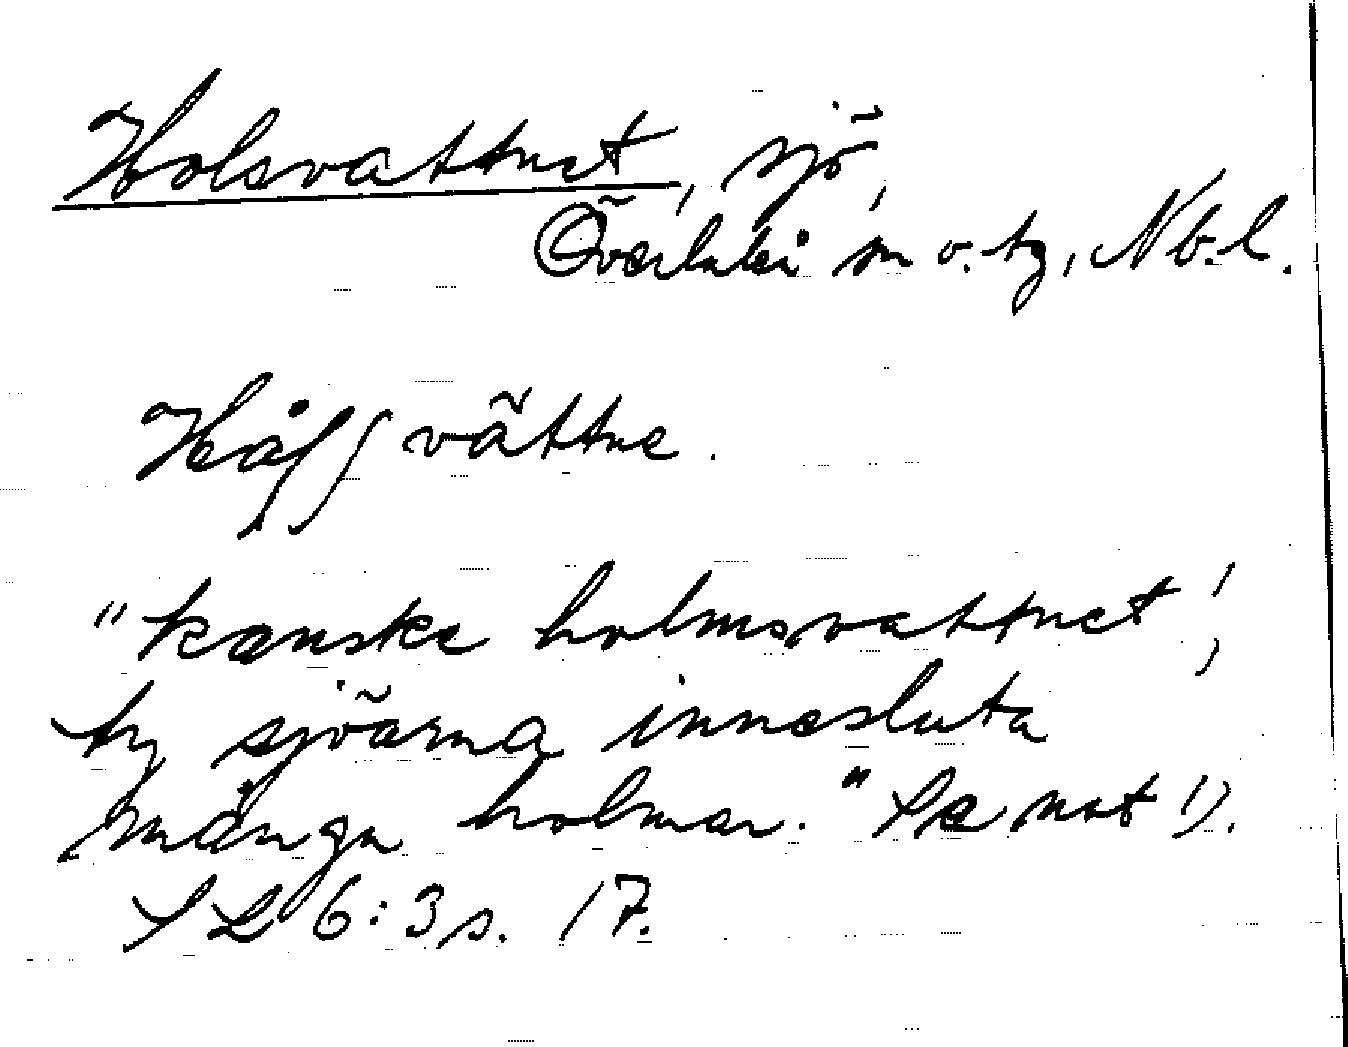 Holsvattnet, sjö,
Överluleå sn o. tg, Nb. l.
Håſſvättne.
"kanske holmsvattnet',
ty sjöarna innesluta
många holmar." Se not 1).
SL 6:3 s. 17.